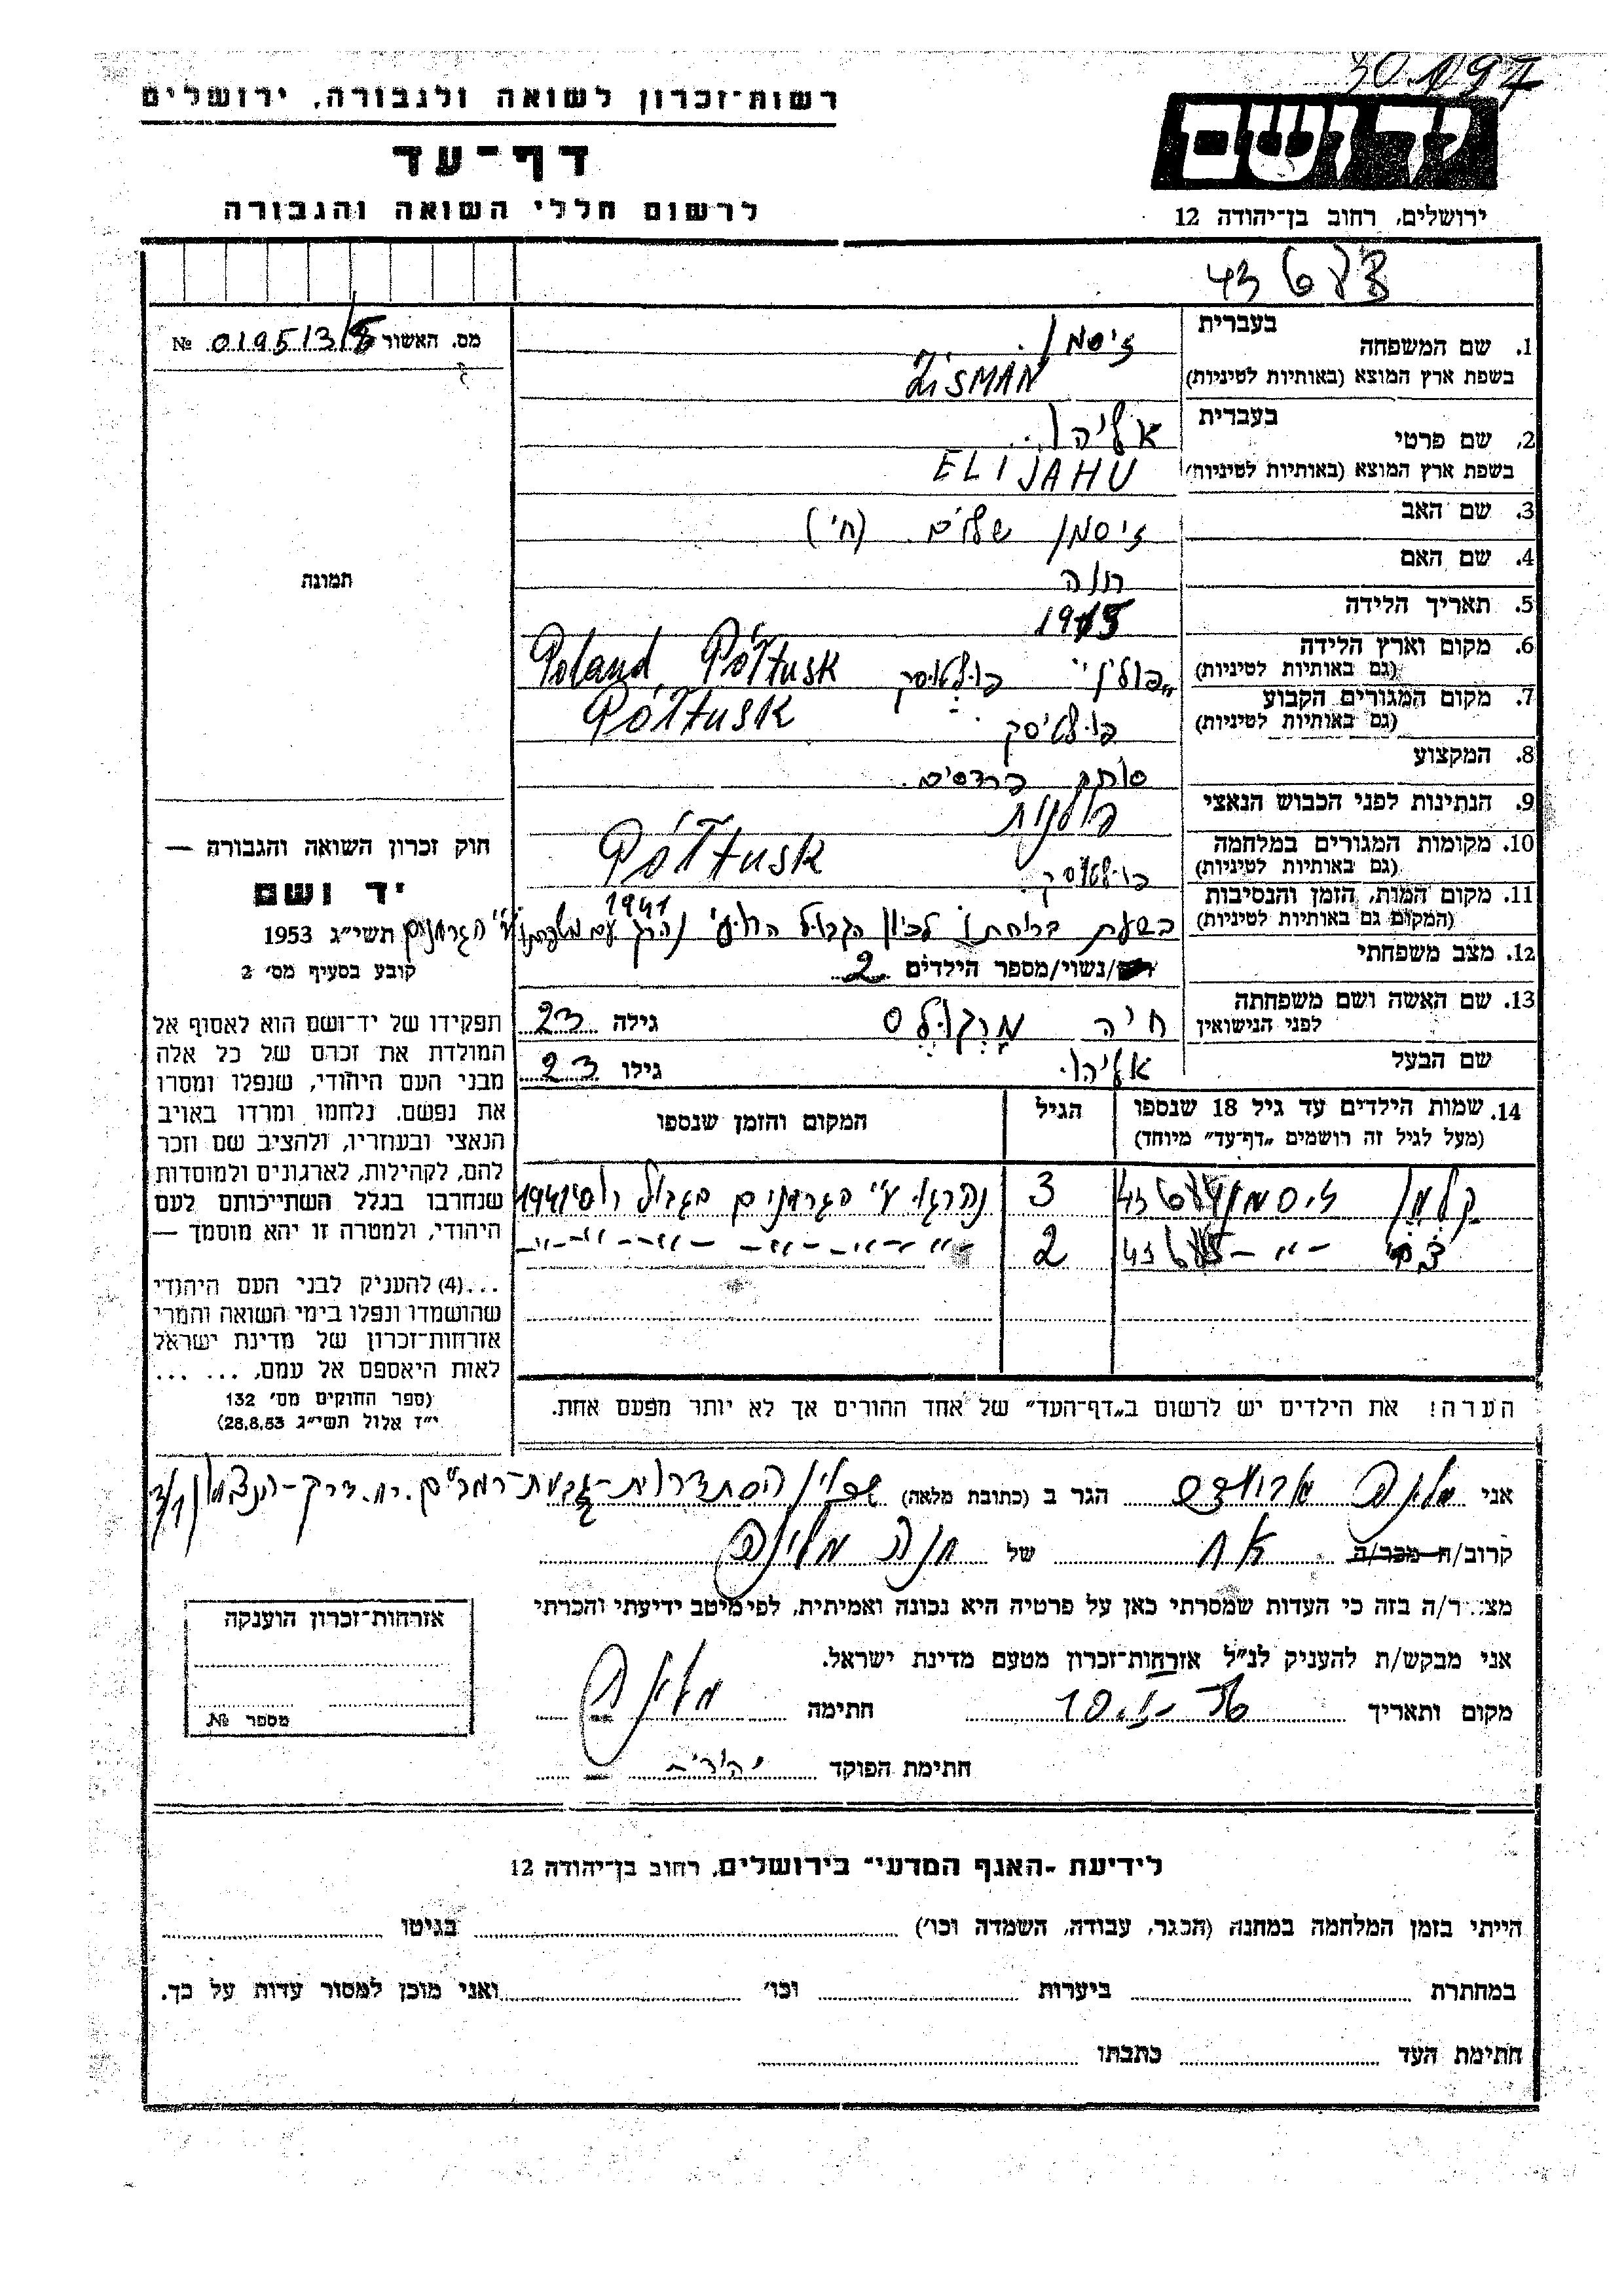 30.1.197
רשות־זכרון לשואה ולגבורה, ירושלים
דף־עד
לרשום חללי השואה והגבורה
יד ושם
ירושלים, רחוב בן־יהודה 12
מס. האשור № 019513/8
תמונה
1. שם המשפחה בעברית זיסמן
בשפת ארץ המוצא (באותיות לטיניות) ZISMAN
2. שם פרטי בעברית אליהו
בשפת ארץ המוצא (באותיות לטיניות) ELIJAHU
3. שם האב זיסמן שלום (חי')
4. שם האם חוה
5. תאריך הלידה 1915
6. מקום וארץ הלידה (גם באותיות לטיניות) "פולין" פולטוסק Poland, Półtusk
7. מקום המגורים הקבוע (גם באותיות לטיניות) פולטיסק Półtusk
8. המקצוע סוחר
9. הנתינות לפני הכבוש הנאצי פולנית
10. מקומות המגורים במלחמה (גם באותיות לטיניות) פולטוסק Półtusk
11. מקום המות, הזמן והנסיבות (המקום גם באותיות לטיניות) בשעת בריחתו לכיון הגבול הרוסי נהרג עם משפחתו ע"י הגרמנים 1941
12. מצב משפחתי /נשוי/מספר הילדים 2
13. שם האשה ושם משפחתה לפני הנישואין חיה מרקולס גילה 23
שם הבעל אליהו גילו 23
14. שמות הילדים עד גיל 18 שנספו (מעל לגיל זה רושמים „דף־עד” מיוחד) הגיל המקום והזמן שנספו
קלמן זיסמן 3 נהרגו ע"י הגרמנים בגבול רוסי 1941
צבי -"- 2 -"- -"- -"- -"- -"-
הערה! את הילדים יש לרשום ב„דף־העד” של אחד ההורים אך לא יותר מפעם אחת.
חוק זכרון השואה והגבורה —
יד ושם
תשי״ג 1953
קובע בסעיף מס׳ 2
תפקידו של יד־ושם הוא לאסוף אל
המולדת את זכרם של כל אלה
מבני העם היהודי, שנפלו ומסרו
את נפשם, נלחמו ומרדו באויב
הנאצי ובעוזריו, ולהציב שם וזכר
להם, לקהילות, לארגונים ולמוסדות
שנחרבו בגלל השתייכותם לעם
היהודי, ולמטרה זו יהא מוסמך —
...(4) להעניק לבני העם היהודי
שהושמדו ונפלו בימי השואה והמרי
אזרחות־זכרון של מדינת ישראל
לאות היאספם אל עמם. ... ...
(ספר החוקים מס׳ 132
י״ז אלול תשי״ג 28.8.53)
אני הגר ב (כתובת מלאה) שכון הסתדרות־גבעת־רמב"ם
קרוב/ה מכר/ה אח של חנה
מצהיר/ה בזה כי העדות שמסרתי כאן על פרטיה היא נכונה ואמיתית, לפי מיטב ידיעתי והכרתי
אני מבקש/ת להעניק לנ״ל אזרחות־זכרון מטעם מדינת ישראל.
מקום ותאריך חתימה
חתימת הפוקד
אזרחות־זכרון הוענקה
מספר №
לידיעת ״האגף המדעי״ בירושלים, רחוב בן־יהודה 12
הייתי בזמן המלחמה במחנה (הכגר, עבודה, השמדה וכו׳) בגיטו
במחתרת ביערות וכו׳ ואני מוכן למסור עדות על כך.
חתימת העד כתבתו